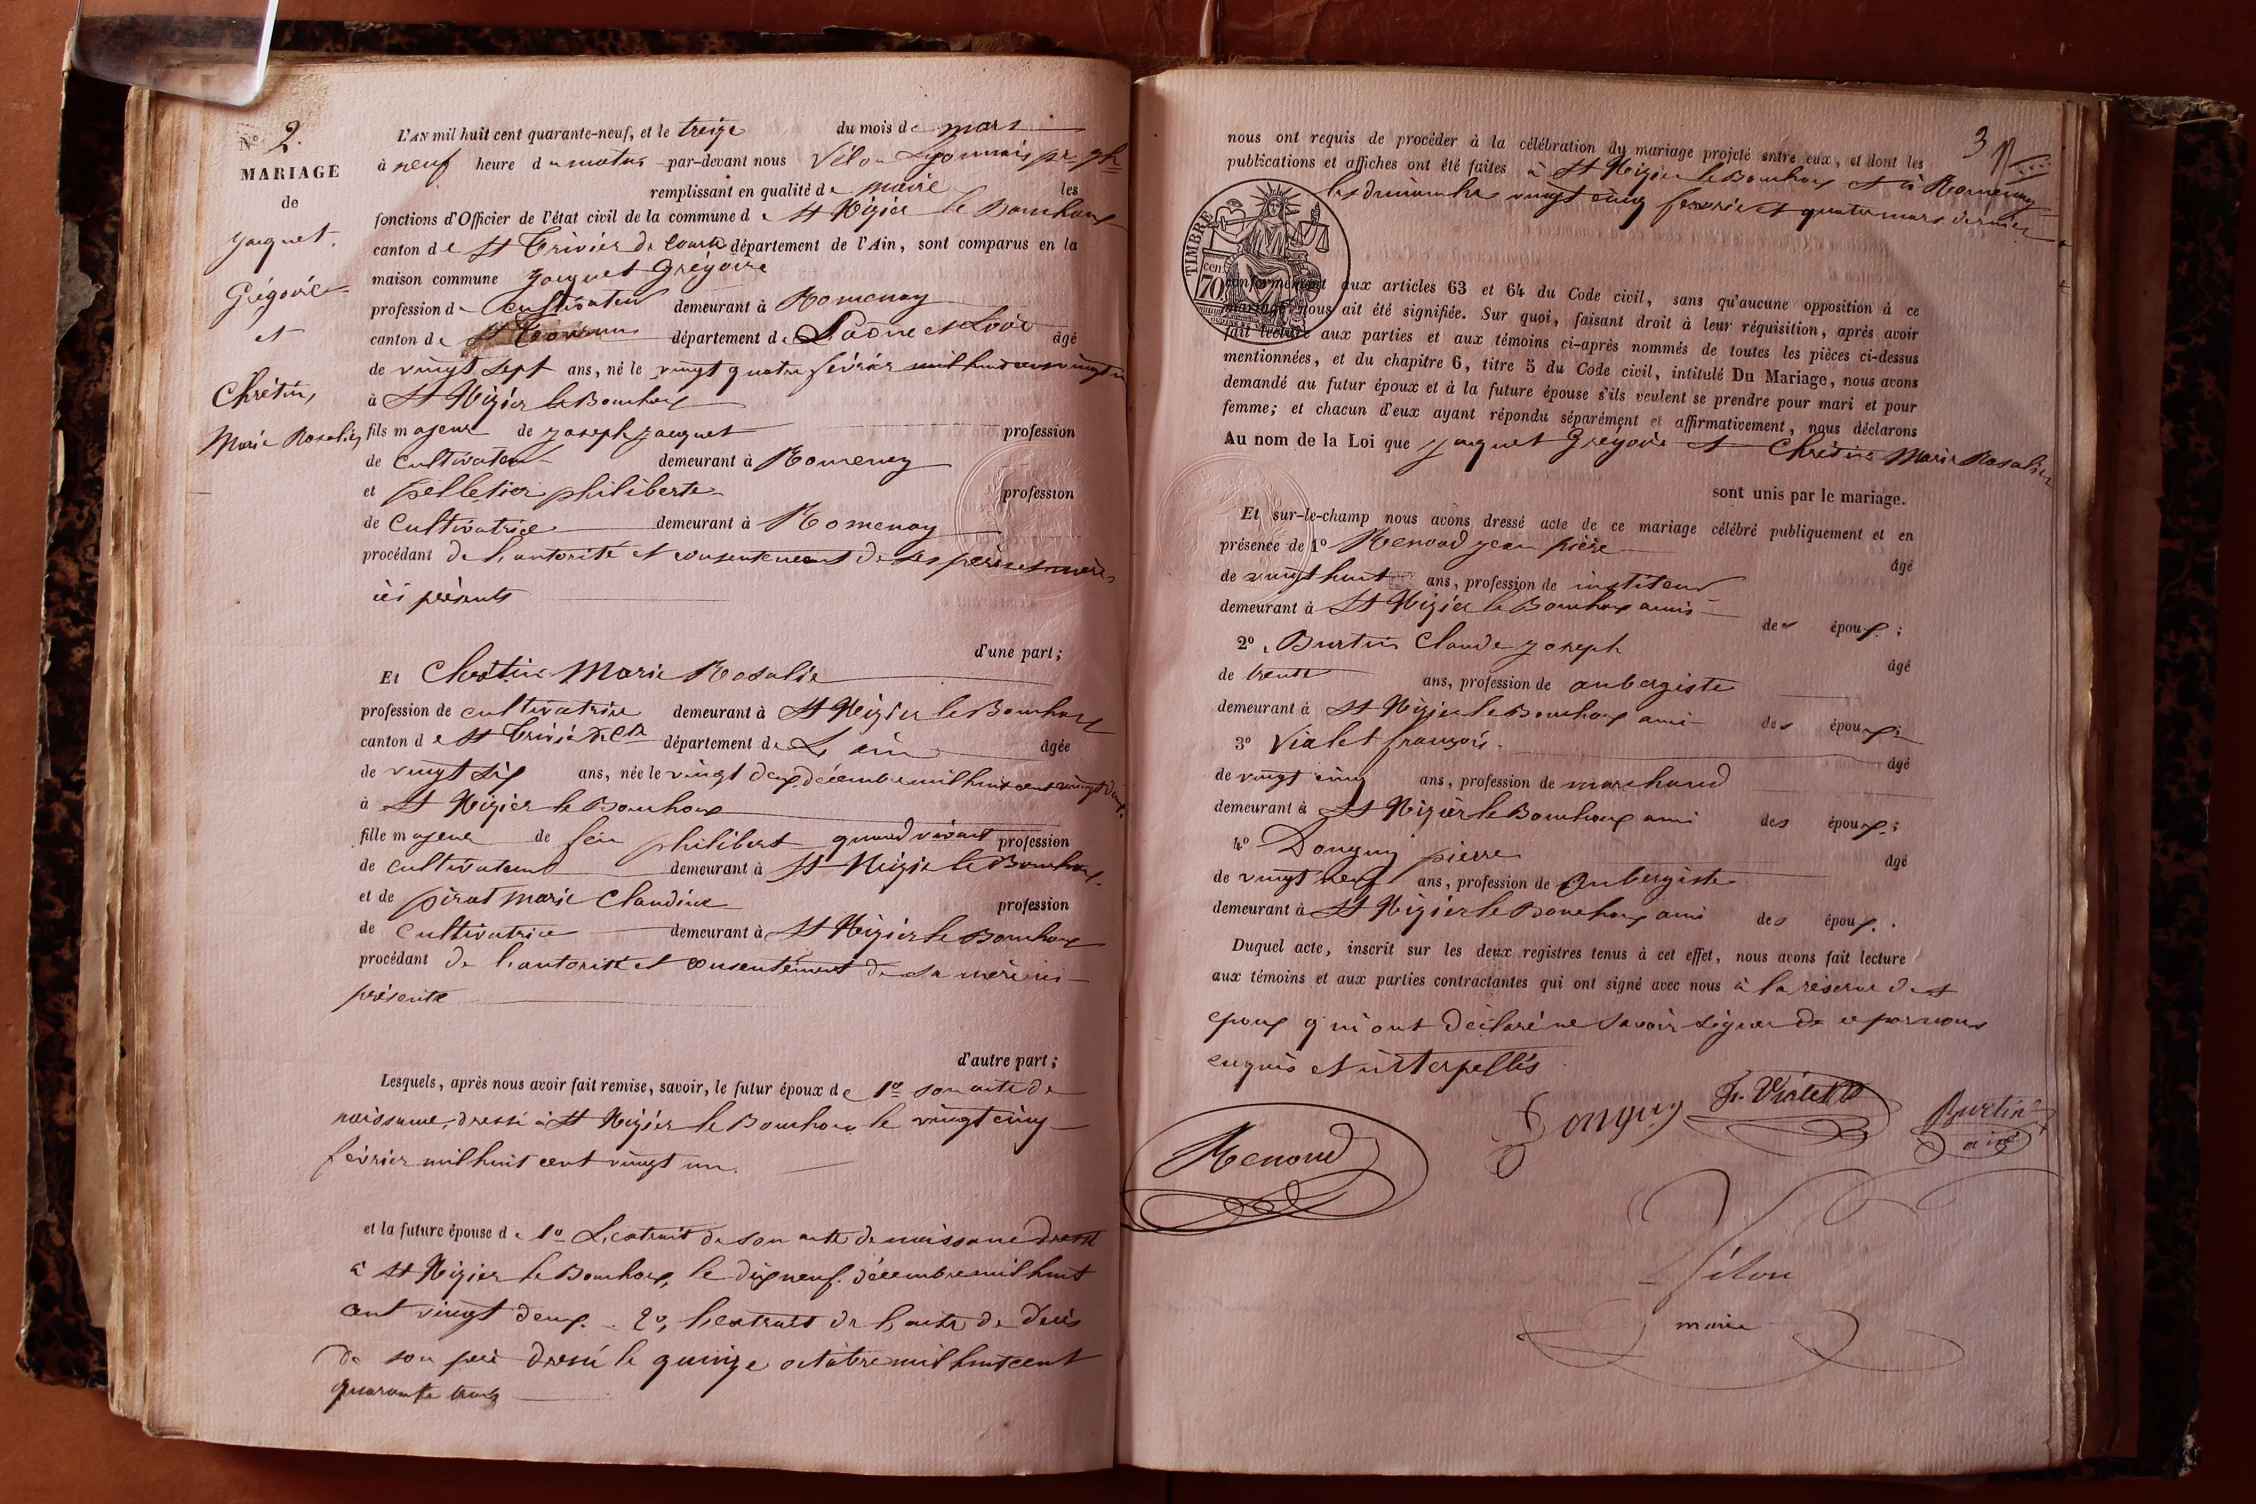 N° 2.
MARIAGE
de
Jacquet
Grégoire
et
Chrétin,
Marie Rosalie,
L'AN mil huit cent quarante-neuf, et le treize du mois de mars
à neuf heure du matin par-devant nous Vélon Lyonnais
remplissant en qualité de maire les
fonctions d'Officier de l'état civil de la commune de St Nizier le Bouchoux
canton de St Trivier de Courte département de l'Ain, sont comparus en la
maison commune Jacquet Grégoire
profession de cultivateur demeurant à Romenay
canton de département de Saône et Loire âgé
de vingt sept ans, né le vingt quatre février mil huit cent vingt
à St Nizier le Bouchoux
fils majeur de joseph jacquet profession
de cultivateur demeurant à Romenay
et pelletier philiberte profession
de cultivatrice demeurant à Romenay
procédant de l'autorité et consentement de ses père et mère
ici présents
d'une part;
Et Chrétin Marie Rosalie
profession de cultivatrice demeurant à St Nizier le Bouchoux
canton de St Trivier de Cte département de L'ain âgée
de vingt six ans, née le vingt deux décembre mil huit cent vingt deux
à St Nizier le Bouchoux
fille majeur de feu philibert quand vivant profession
de cultivateur demeurant à St Nizier le Bouchoux
et de pirat marie Claudine profession
de cultivatrice demeurant à St Nizier le Bouchoux
procédant de l'autorité et consentement de sa mère ici
présente
d'autre part;
Lesquels, après nous avoir fait remise, savoir, le futur époux de 1° son acte de
naissance, dressé à St Nizier le Bouchoux le vingt cinq
février mil huit cent vingt un.
et la future épouse de 1° L'extrait de son acte de naissance dressé
à St Nizier le Bouchoux, le dix neuf décembre mil huit
cent vingt deux. 2°, l'extrait de l'acte de décès
de son père dressé le quinze octobre mil huit cent
quarante trois
3
nous ont requis de procéder à la célébration du mariage projeté entre eux, et dont les
publications et affiches ont été faites à St Nizier le Bouchoux et à Romenay
les dimanches vingt cinq février et quatre mars dernier
TIMBRE
70 cen
conformément aux articles 63 et 64 du Code civil, sans qu'aucune opposition à ce
mariage nous ait été signifiée. Sur quoi, faisant droit à leur réquisition, après avoir
fait lecture aux parties et aux témoins ci-après nommés de toutes les pièces ci-dessus
mentionnées, et du chapitre 6, titre 5 du Code civil, intitulé Du Mariage, nous avons
demandé au futur époux et à la future épouse s'ils veulent se prendre pour mari et pour
femme; et chacun d'eux ayant répondu séparément et affirmativement, nous déclarons
Au nom de la Loi que Jacquet Grégoire et Chrétin Marie Rosalie
sont unis par le mariage.
Et sur-le-champ nous avons dressé acte de ce mariage célébré publiquement et en
présence de 1° Renoud jean pière âgé
de vingt huit ans, profession de instituteur
demeurant à St Nizier le Bouchoux amis des époux;
2°, Burtin Claude joseph âgé
de trente ans, profession de aubergiste
demeurant à St Nizier le Bouchoux ami des époux;
3° Vialet françois âgé
de vingt cinq ans, profession de marchand
demeurant à St Nizier le Bouchoux ami des époux;
4° Donguy pierre âgé
de vingt neuf ans, profession de Aubergiste
demeurant à St Nizier le Bouchoux ami des époux.
Duquel acte, inscrit sur les deux registres tenus à cet effet, nous avons fait lecture
aux témoins et aux parties contractantes qui ont signé avec nous à la réserve des
epoux qui ont déclaré ne savoir signer de ce par nous
enquis et interpellés
Renoud
Donguy
F. Vialet
Burtin
ainé
Vélon
maire